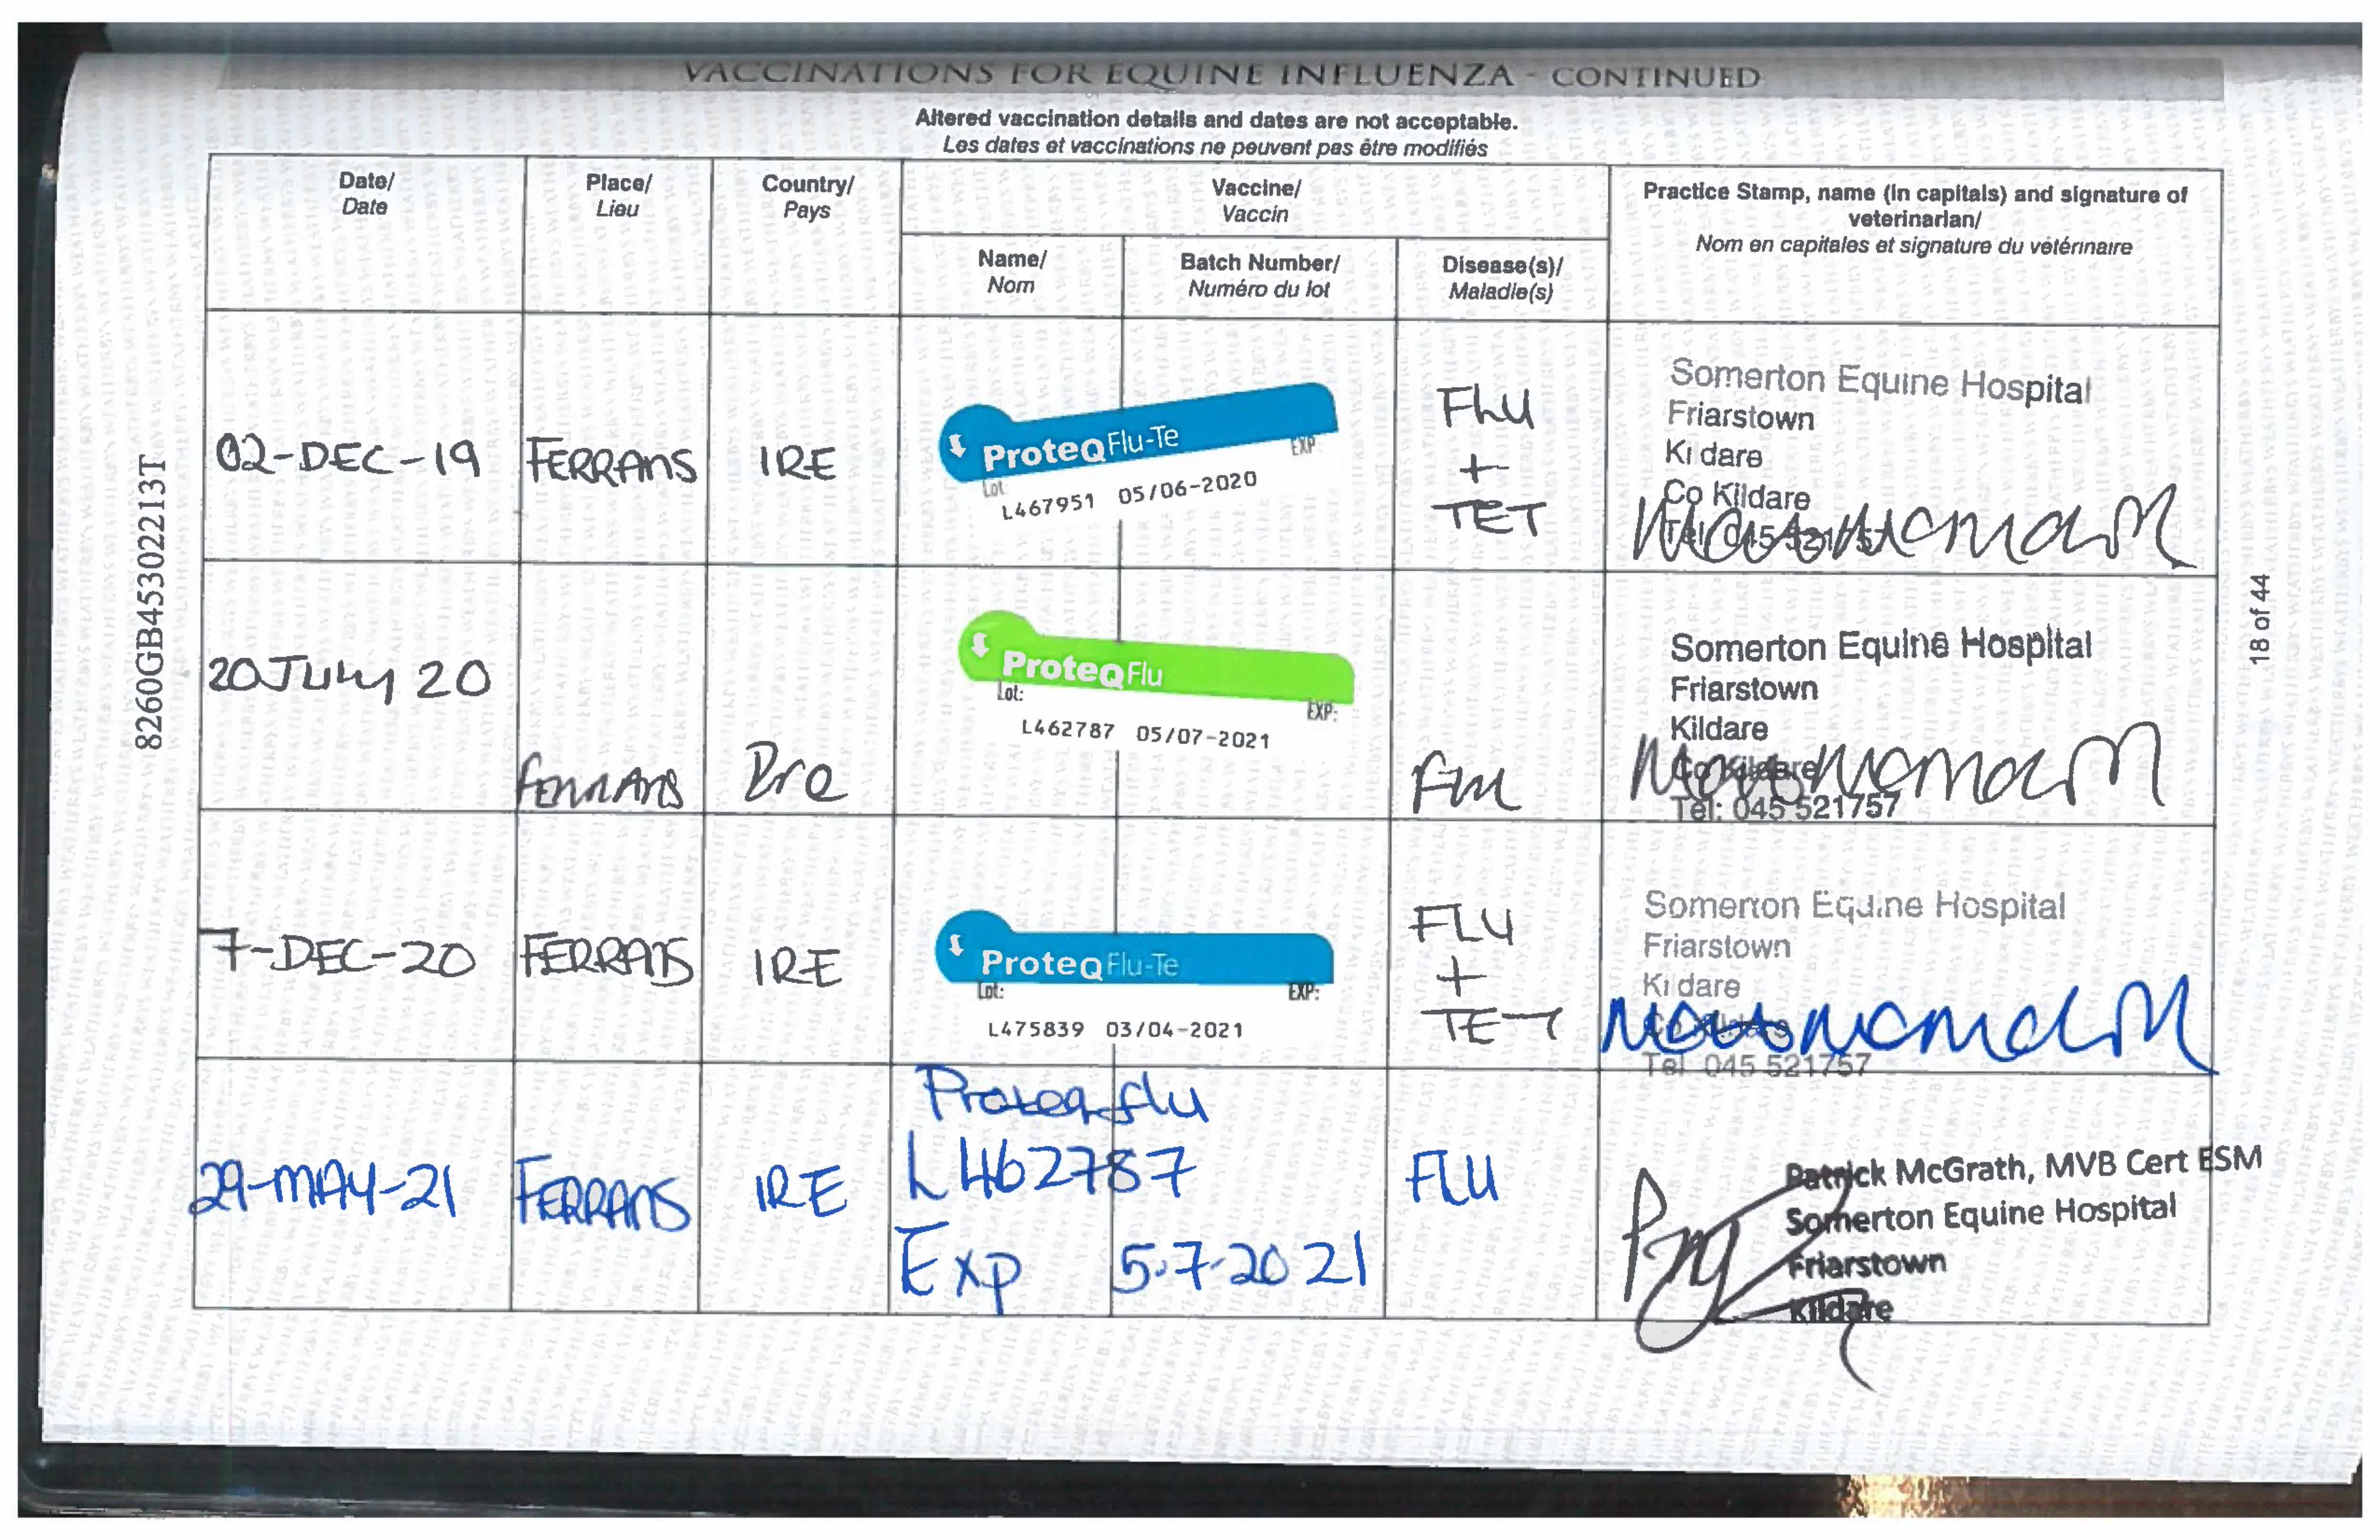 VACCINATIONS FOR EQUINE INFLUENZA - CONTINUED
Altered vaccination details and dates are not acceptable.
Les dates et vaccinations ne peuvent pas être modifiés
Date/
Date
Place/
Lieu
Country/
Pays
Vaccine/
Vaccin
Name/
Nom
Batch Number/
Numéro du lot
Disease(s)/
Maladie(s)
Practice Stamp, name (in capitals) and signature of
veterinarian/
Nom en capitales et signature du vétérinaire
02-DEC-19
FERRANS
IRE
ProteqFlu-Te
Lot EXP
L467951 05/06-2020
FLU
+
TET
Somerton Equine Hospital
Friarstown
Kildare
Co Kildare
Tel 045 521757
20 July 20
Ferrans
Ire
ProteqFlu
Lot:
EXP:
L462787 05/07-2021
Flu
Somerton Equine Hospital
Friarstown
Kildare
Co Kildare
Tel: 045 521757
7-DEC-20
FERRANS
IRE
ProteqFlu-Te
Lot: EXP:
L475839 03/04-2021
FLU
+
TET
Somerton Equine Hospital
Friarstown
Kildare
Co Kildare
Tel 045 521757
29-MAY-21
FERRANS
IRE
Proteq flu
L462787
Exp 5.7.2021
FLU
Patrick McGrath, MVB Cert ESM
Somerton Equine Hospital
Friarstown
Kildare
8260GB453022213T
18 of 44